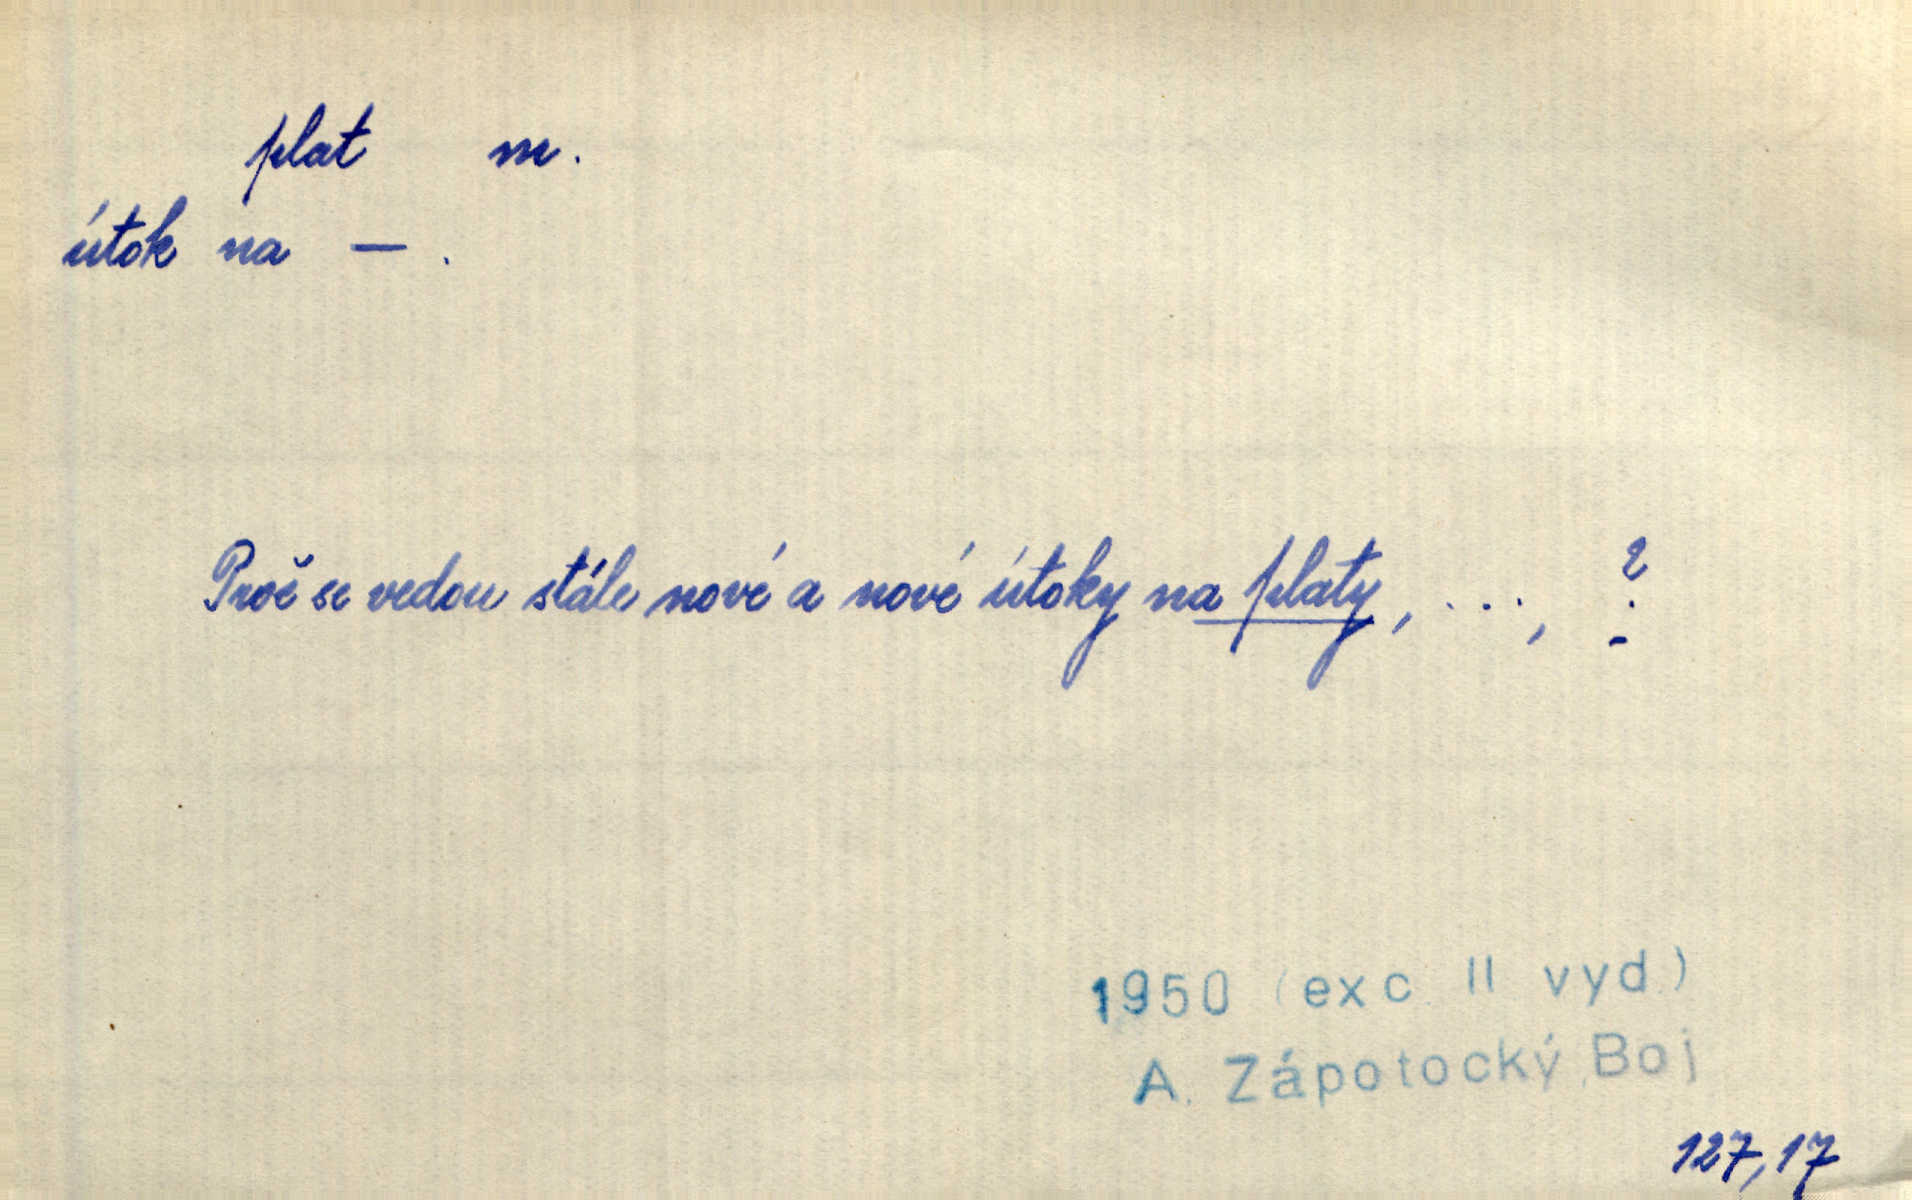 plat m.
útok na — .
Proč se vedou stále nové a nové útoky na platy, ..., ?
1950 (exc. II vyd.)
A. Zápotocký, Boj
127,17